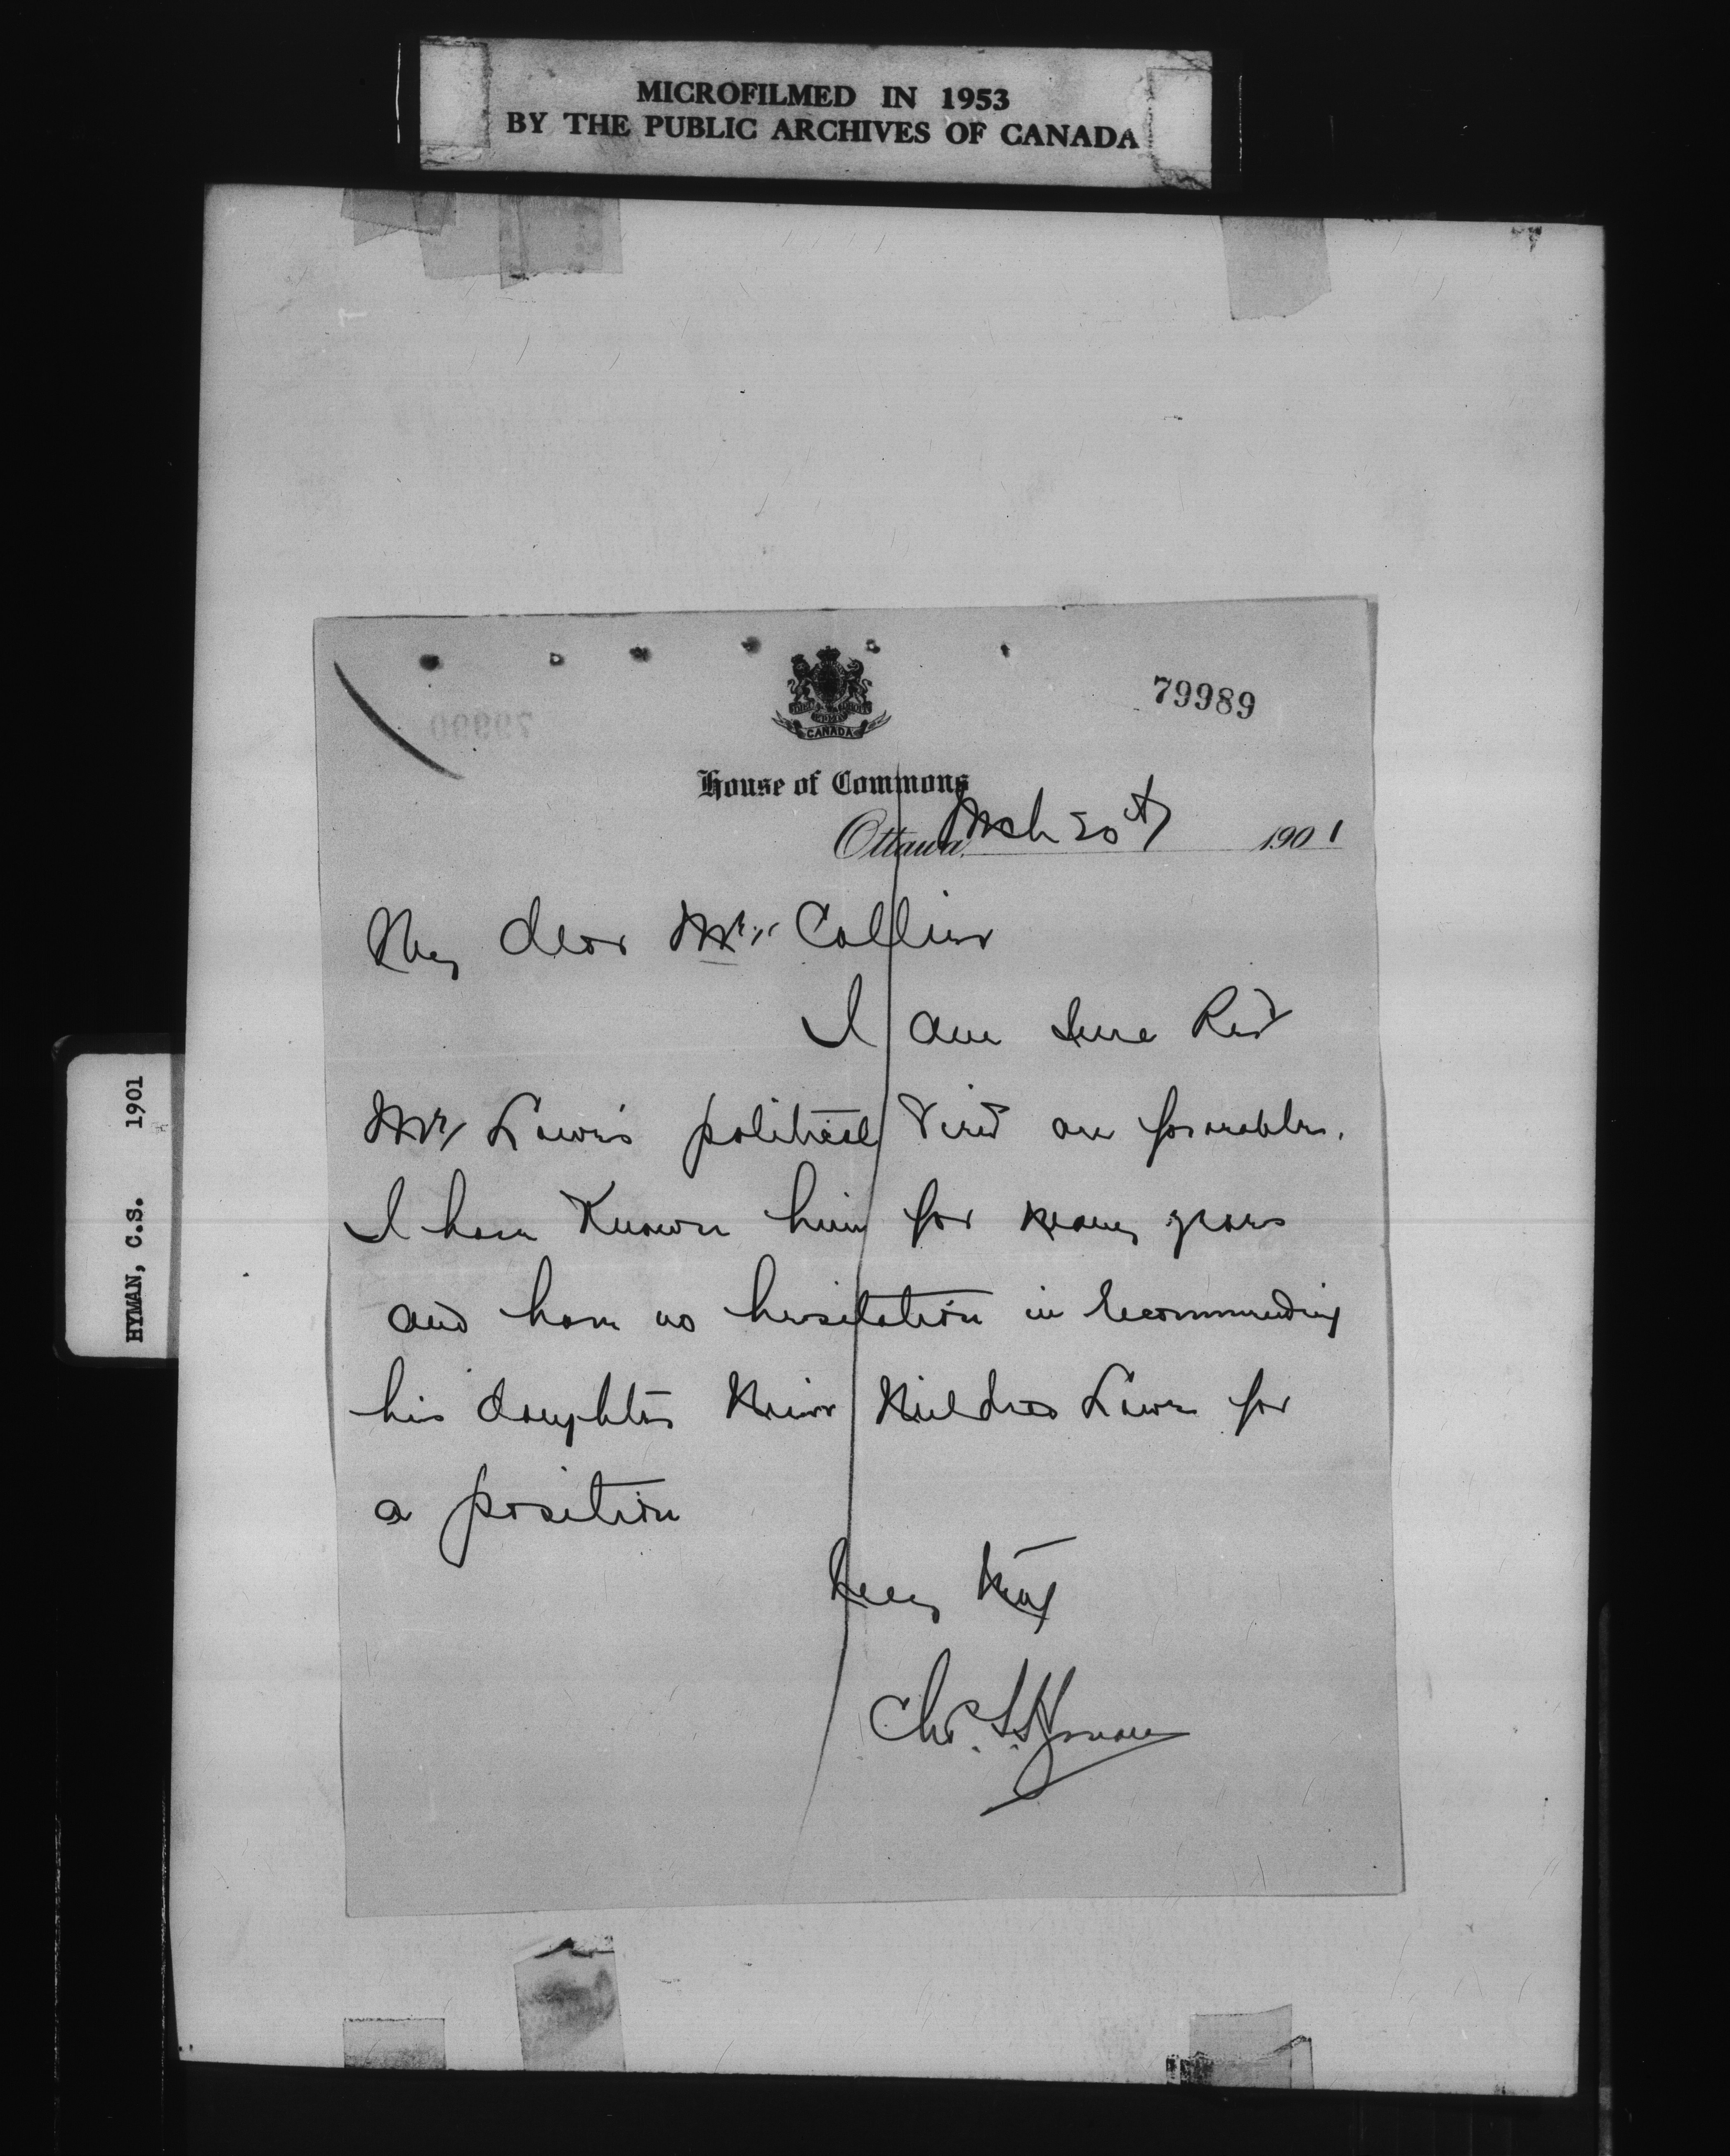 MICROFILMED IN 1953
BY THE PUBLIC ARCHIVES OF CANADA
79989
CANADA
House of Commons
Ottawa, Mch 20th 1901
My dear Mrs Collier
I am sure Revd
Mr Lowe's political views are favorable.
I have known him for many years
and have no hesitation in recommending
his daughter Miss Mildred Lowe for
a position
Very truly
Chs. S. Hyman
HYMAN, C.S. 1901